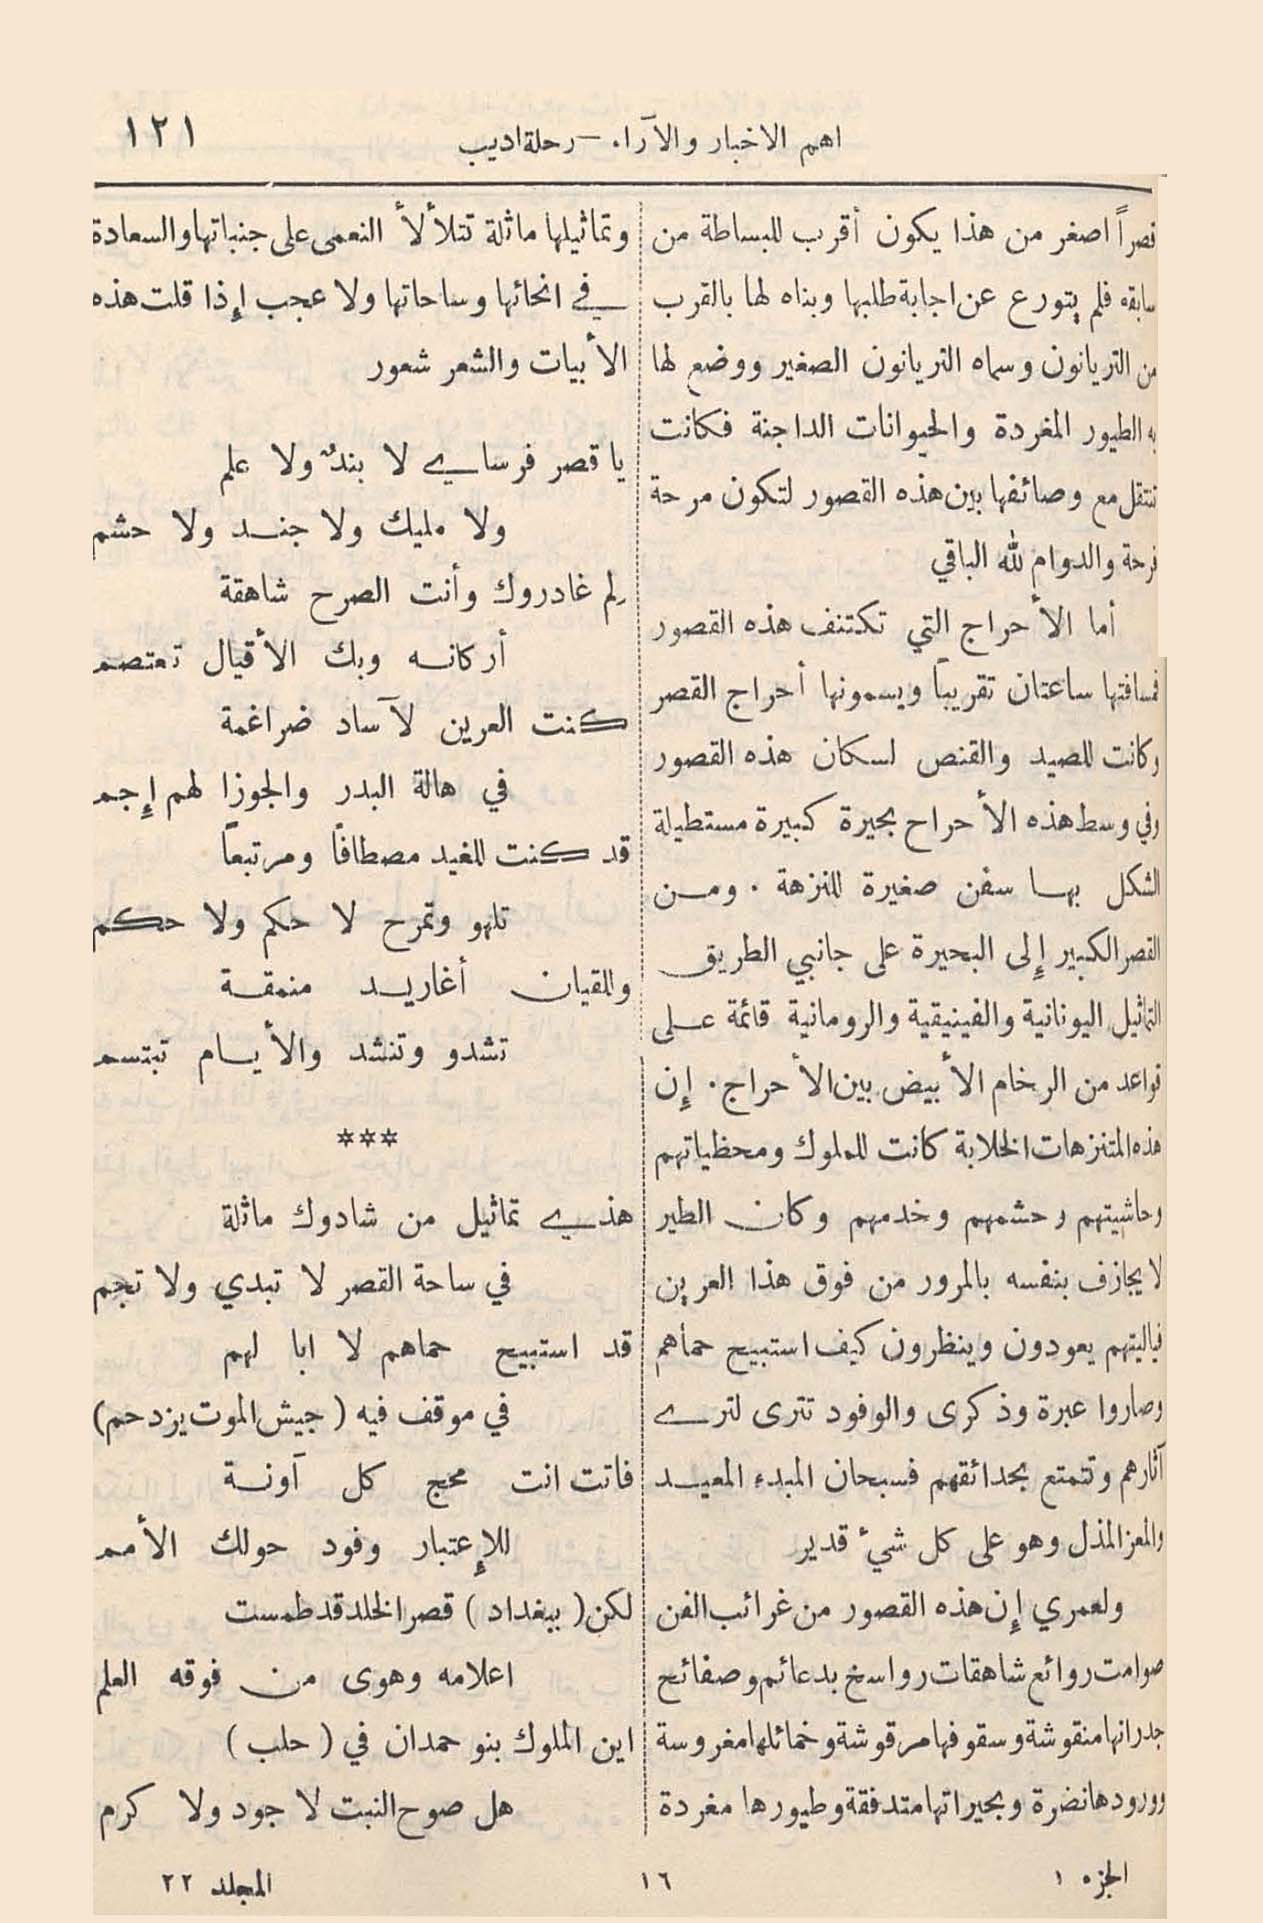 ١٢١
اهم الاخبار والآراء. — رحلة اديب
قصراً اصغر من هذا يكون أقرب للبساطة من
سابقه فلم يتورع عن اجابة طلبها وبناه لها بالقرب
من التريانون وسماه التريانون الصغير ووضع لها
به الطيور المغردة والحيوانات الداجنة فكانت
تنتقل مع وصائفها بين هذه القصور لتكون مرحة
فرحة والدوام لله الباقي
أما الأحراج التي تكتنف هذه القصور
فمسافتها ساعتان تقريباً ويسمونها أحراج القصر
وكانت للصيد والقنص لسكان هذه القصور
وفي وسط هذه الأحراح بحيرة كبيرة مستطيلة
الشكل بها سفن صغيرة للنزهة . ومن
القصر الكبير إلى البحيرة على جانبي الطريق
التماثيل اليونانية والفينيقية والرومانية قائمة على
قواعد من الرخام الأبيض بين الأحراج . إن
هذه المتنزهات الخلابة كانت للملوك ومحظياتهم
وحاشيتهم وحشمهم وخدمهم وكان الطير
لا يجازف بنفسه بالمرور من فوق هذا العرين
فياليتهم يعودون وينظرون كيف استبيح حمأهم
وصاروا عبرة وذكرى والوفود تترى لترى
آثارهم وتتمتع بحدائقهم فسبحان المبدء المعيد
والمعز المذل وهو على كل شيء قدير
ولعمري إن هذه القصور من غرائب الفن
صوامت روائع شاهقات رواسخ بدعائم وصفائح
جدرانها منقوشة وسقوفها مرقوشة وخمائلها مغروسة
وورودها نضرة وبحيراتها متدفقة وطيورها مغردة
وتماثيلها ماثلة تتلألأ النعمى على جنباتها والسعادة
في انحائها وساحاتها ولا عجب إذا قلت هذه
الأبيات والشعر شعور
يا قصر فرساي لا بندٌ ولا علم
ولا مليك ولا جند ولا حشم
لم غادروك وأنت الصرح شاهقة
أركانه وبك الأقيال تعتصم
كنت العرين لآساد ضراغمة
في هالة البدر والجوزا لهم إجم
قد كنت للغيد مصطافاً ومرتبعاً
تلهو وتمرح لا حكم ولا حكم
وللقيان أغاريد منمقة
تشدو وتنشد والأيام تبتسم
***
هذي تماثيل من شادوك ماثلة
في ساحة القصر لا تبدي ولا تجم
قد استبيح حماهم لا ابا لهم
في موقف فيه ( جيش الموت يزدحم)
فانت انت محج كل آونة
للإعتبار وفود حولك الأمم
لكن ( ببغداد ) قصر الخلد قد طمست
اعلامه وهوى من فوقه العلم
اين الملوك بنو حمدان في ( حلب )
هل صوح النبت لا جود ولا كرم
الجزء ١
١٦
المجلد ٢٢